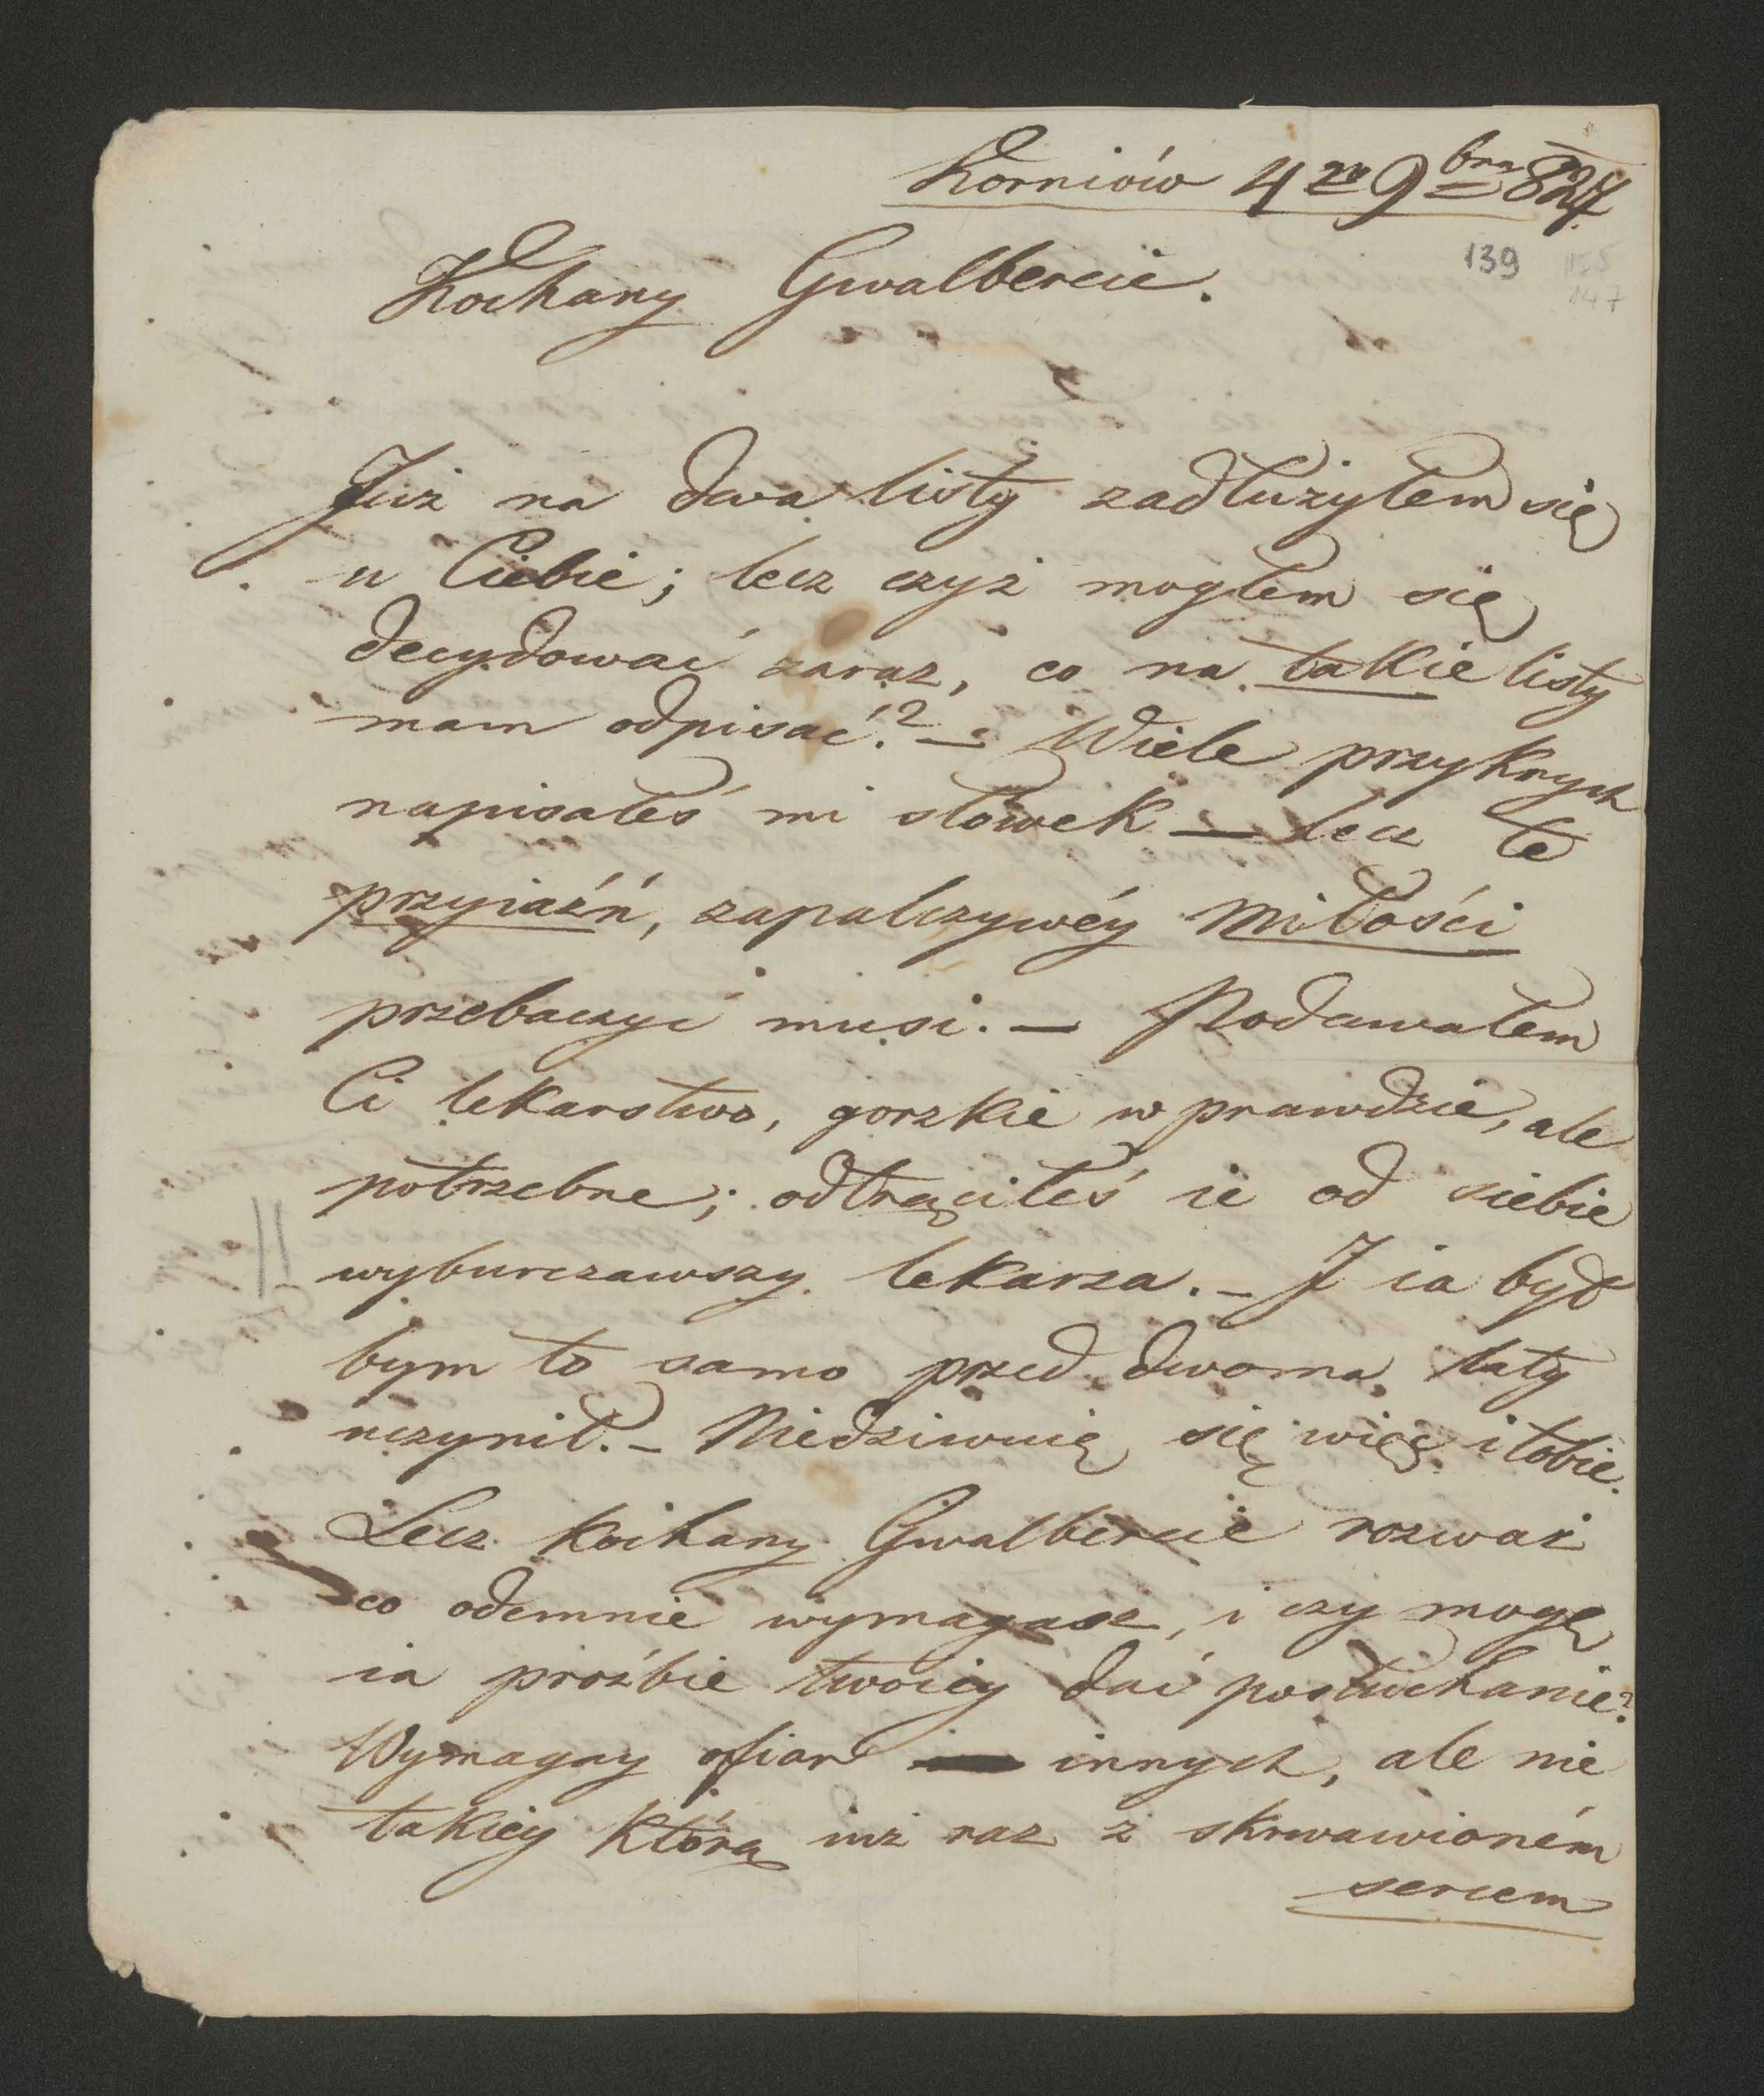 Korniów 4go 9bra 827.
139
147
Kochany Gwalbercie.
Już na dwa listy zadłużyłem się
u Ciebie; lecz czyż mogłem się
decydować zaraz, co na takie listy
mam odpisać? — Wiele przykrych
napisałeś mi słowek — lecz te
przyiaźń, zapalczywéy Miłości
przebaczyć musi. — Podawałem
Ci lekarstwo, gorzkie w prawdzie, ale
potrzebne; odtrąciłeś ie od siebie
wyburczawszy lekarza. — I ia był
bym to samo przed dwoma laty
uczynił. — Niedziwuię się więc i tobie.
Lecz kochany Gwalbercie rozważ
co odemnie wymagasz, i czy mogę
ia prośbie twoiey dać posłuchanie?
Wymagay ofiar innych, ale nie
takiey którą iuż raz z skrwawioném
sercem